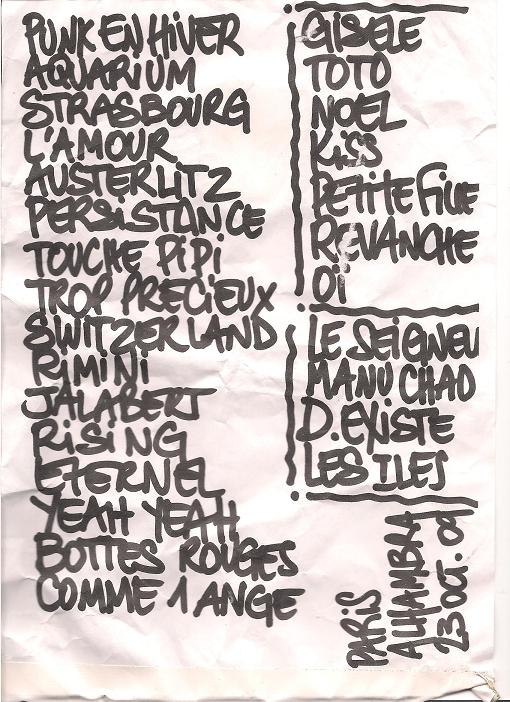 PUNK EN HiVER
AQUARiUM
STRASBOURG
L'AMOUR
AUSTERLITZ
PERSiSTANCE
TOUCHE PiPi
TROP PRECiEUX
SWITZERLAND
RiMiNi
JALABERT
RiSiNG
ETERNEL
YEAH YEAH
BOTTES ROUGES
COMME 1 ANGE
GiSELE
TOTO
NOEL
KiSS
PETiTE FiLLE
REVANCHE
Oi
LE SEiGNEU
MANU CHAO
D. EXiSTE
LES ILES
PARiS
ALHAMBRA
23 OCT. 09